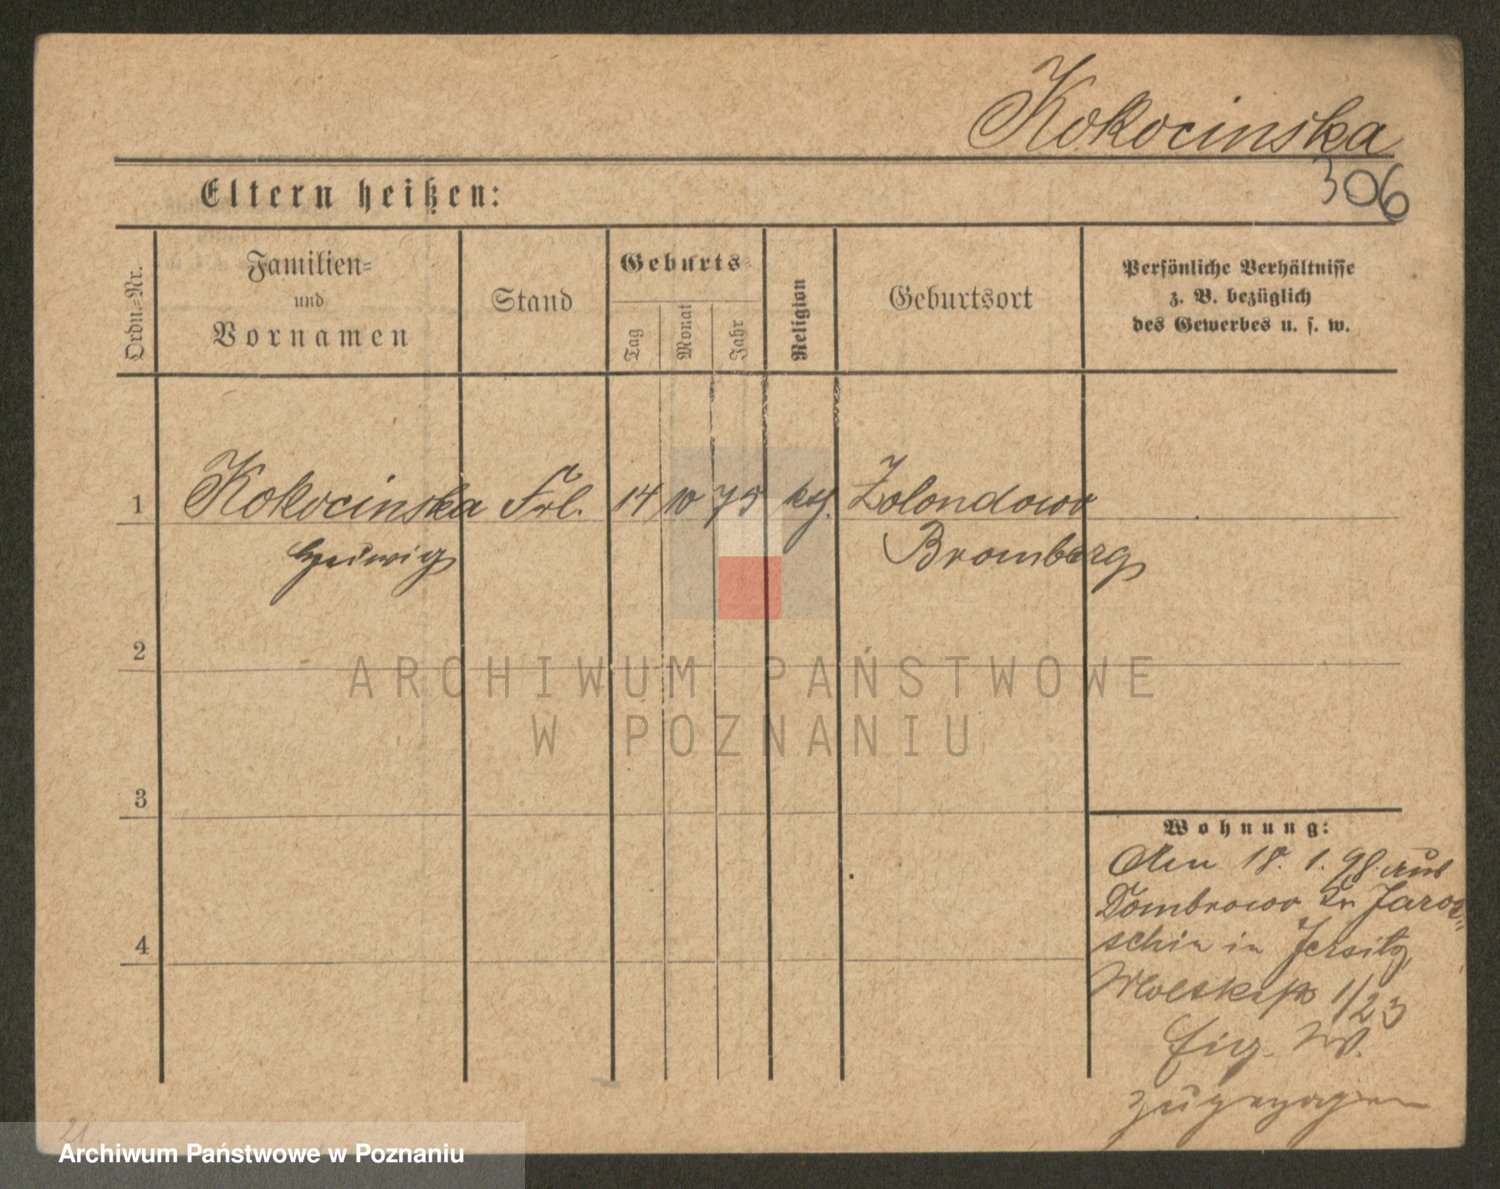 Kokocinska
306
Eltern heißen:
Ordn.-Nr.
Familien-
und
Vornamen
Stand
Geburts-
Tag
Monat
Jahr
Religion
Geburtsort
Persönliche Verhältnisse
z. B. bezüglich
des Gewerbes u. s. w.
1 Kokocinska Frl. 14 10 75 kth. Zolondowo
Hedwig Bromberg
2
3
4
Wohnung:
Den 18. 1. 98. aus
Dombrowo Kr. Jarot=
schin in Jersitz,
1/23
Eig. W.
zugezogen
21
ARCHIWUM PAŃSTWOWE
W POZNANIU
Archiwum Państwowe w Poznaniu